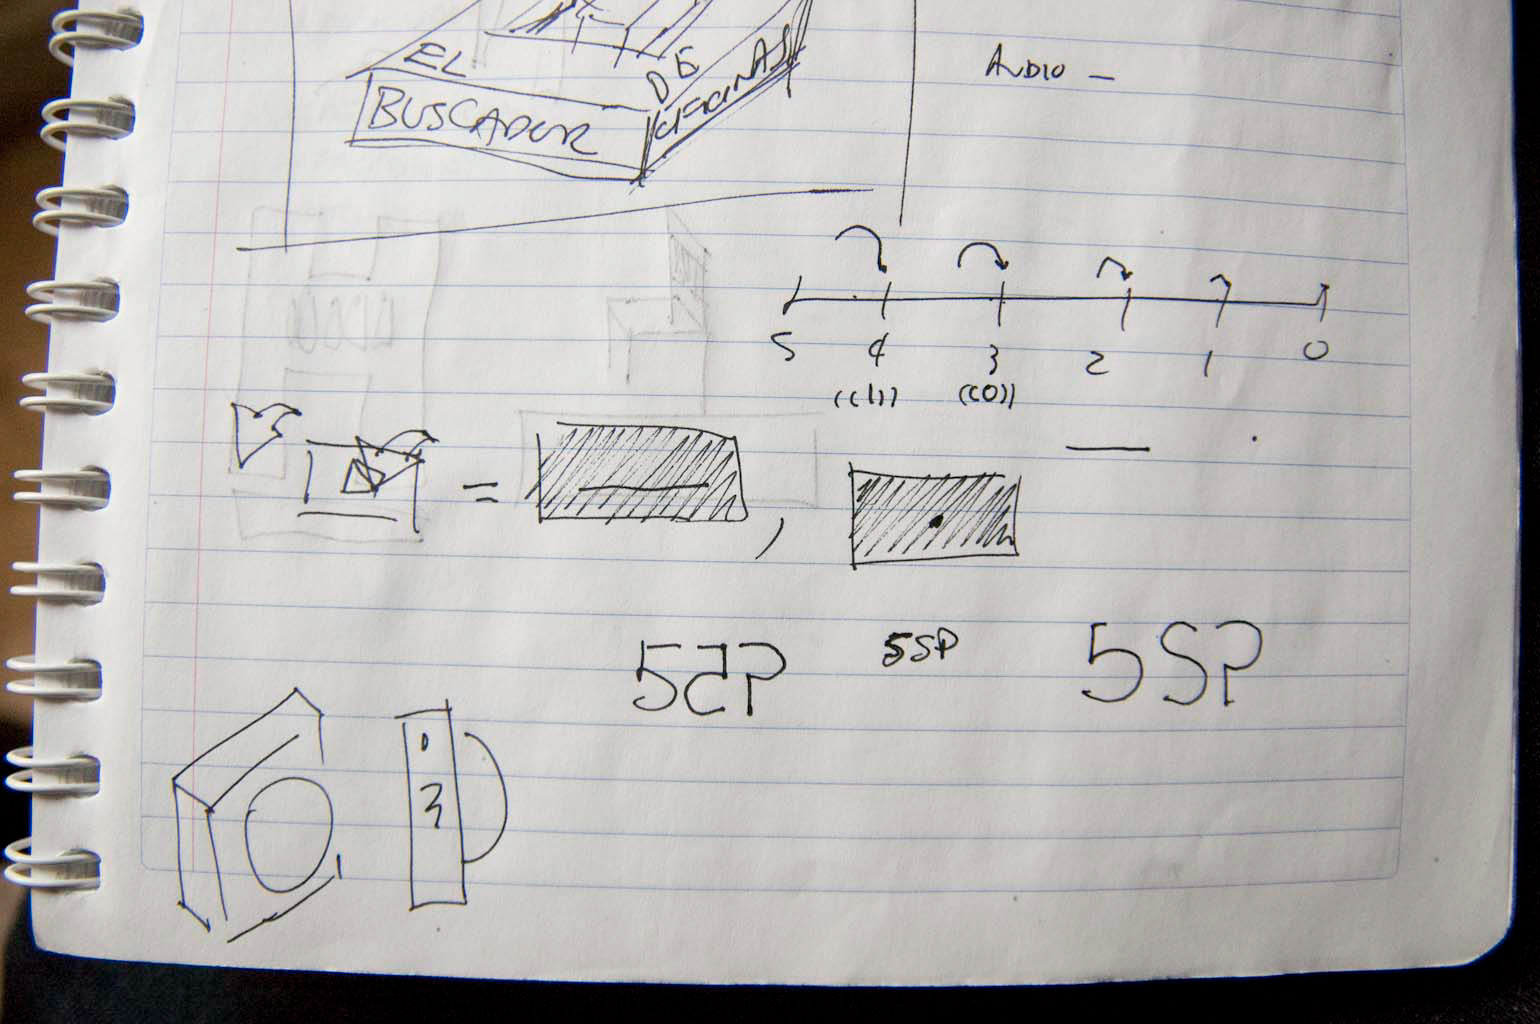 EL
BUSCADOR
DE
AUDIO –
5 4 3 2 1 0
((1)) ((0))
=
,
5SP 5SP 5SP
3